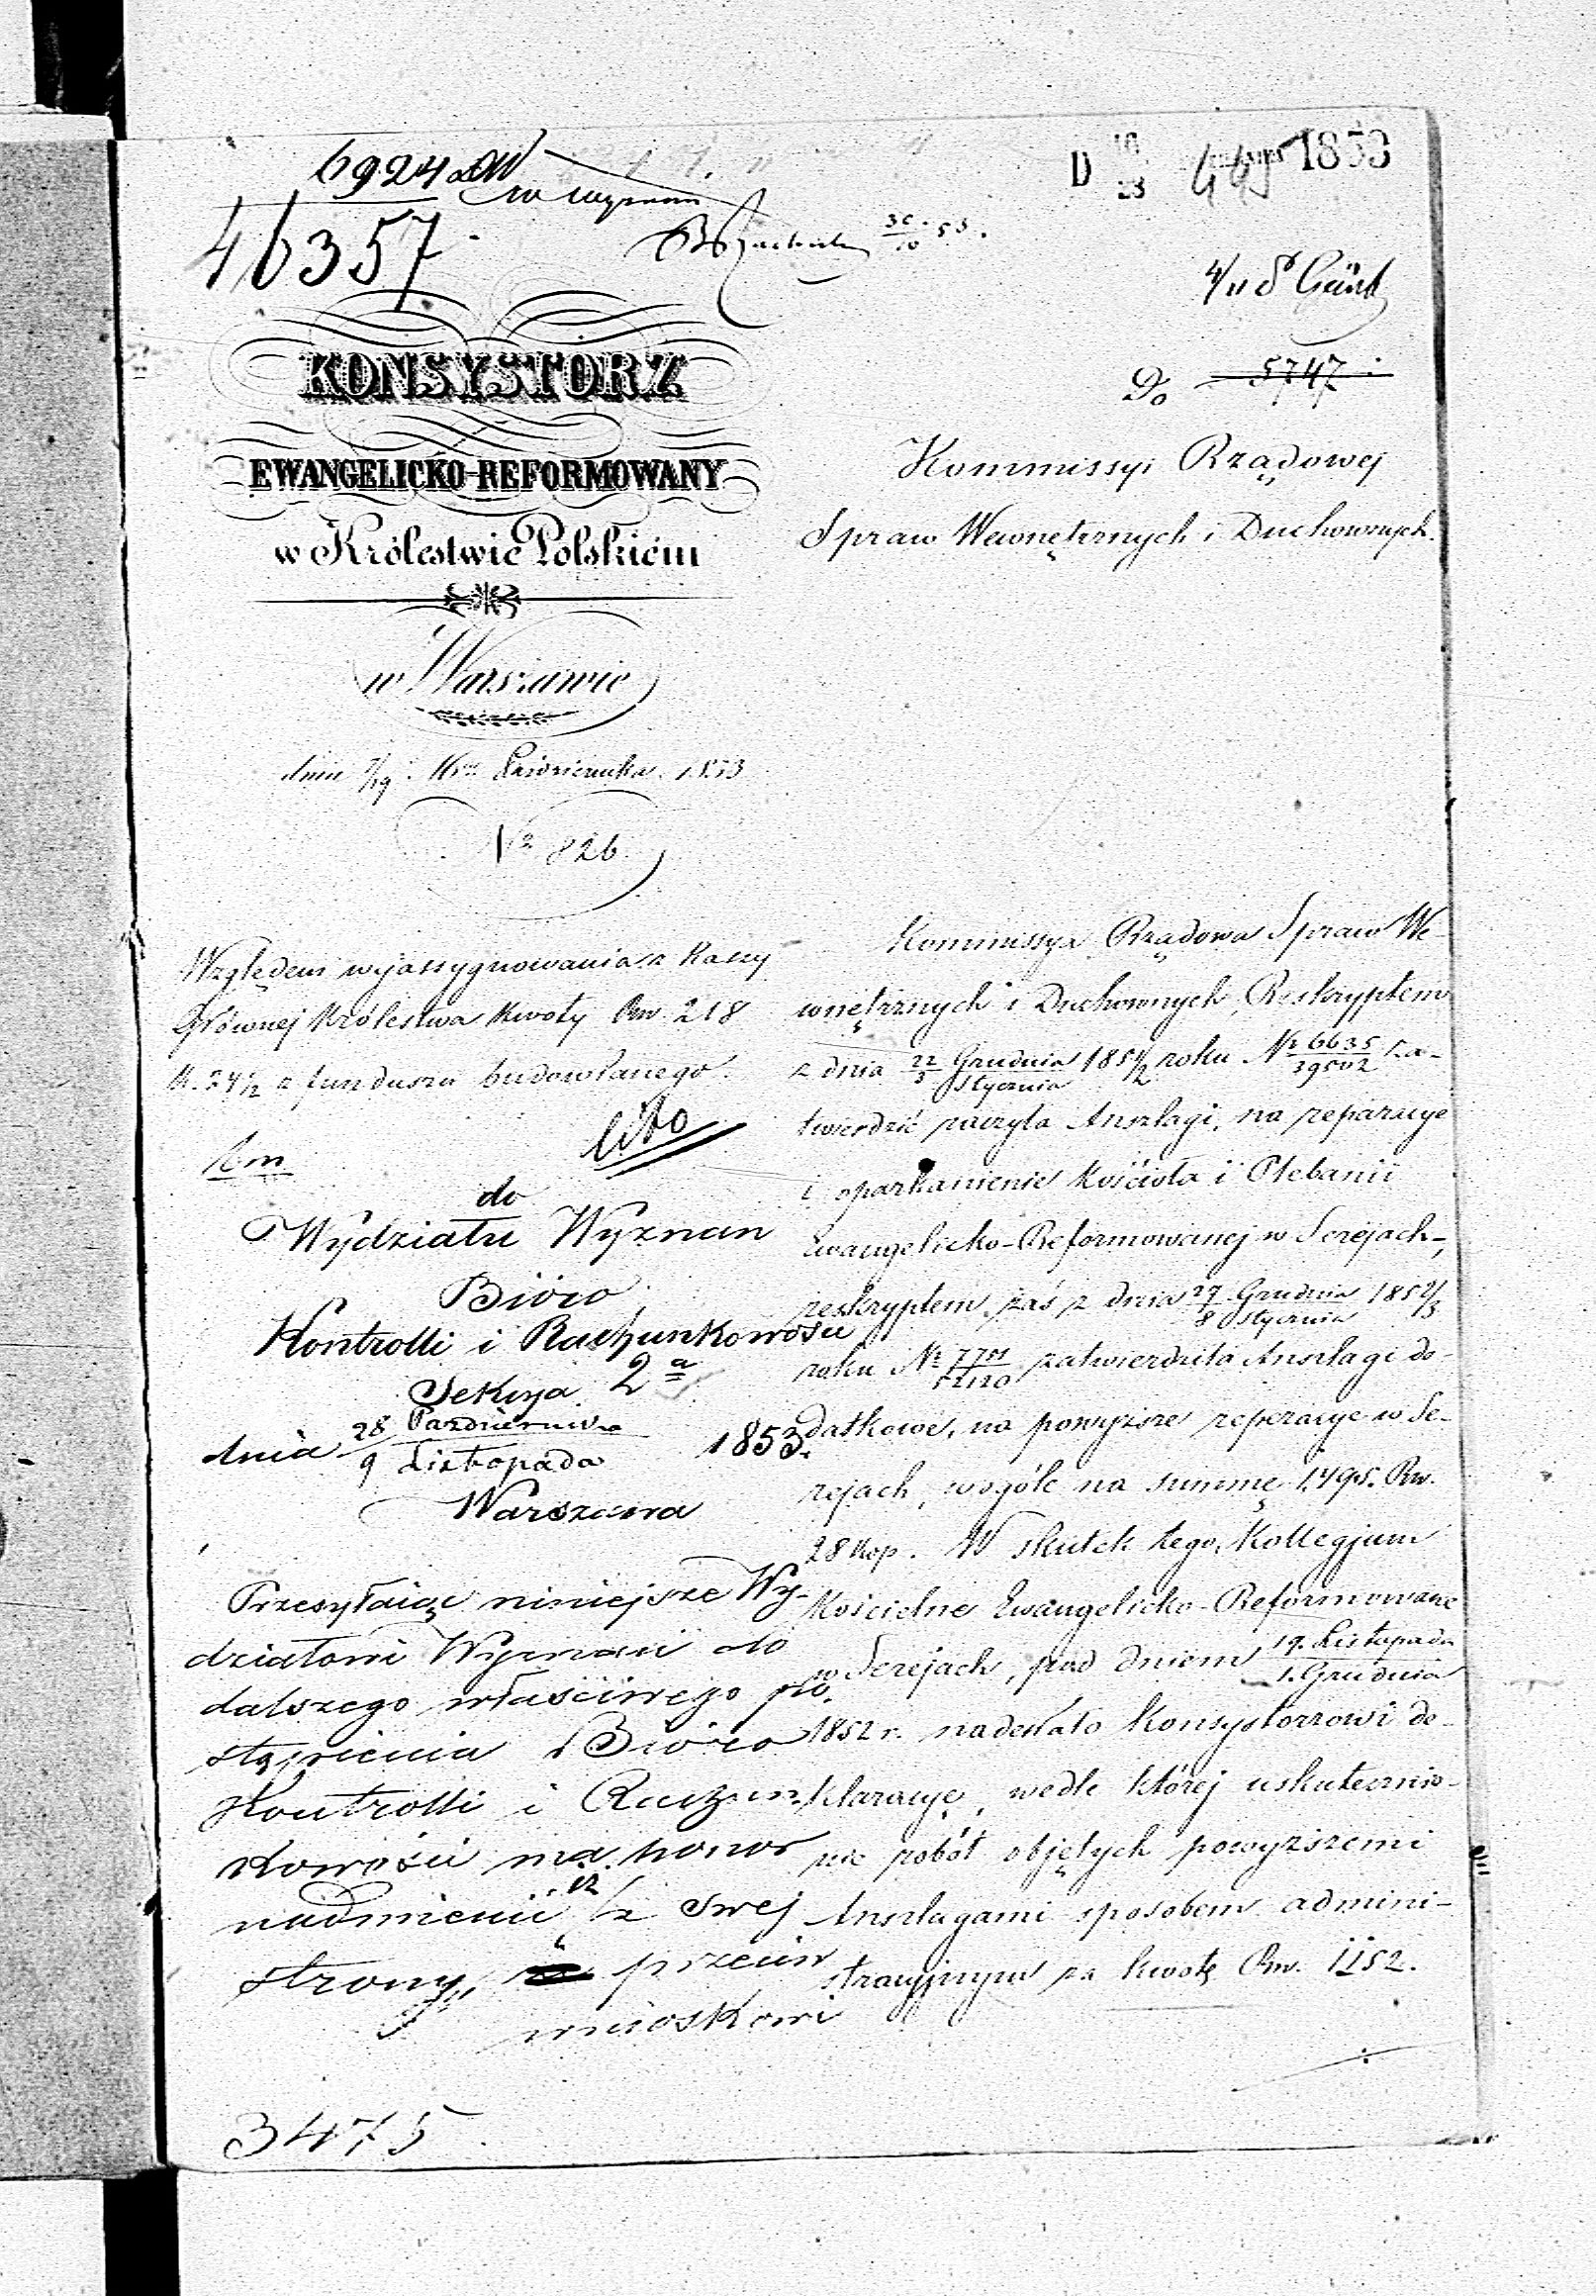 6924
46357
D 16/28 1853
30/10 53.
4/11
5747
KONSYSTORZ
EWANGELICKO-REFORMOWANY
w Królestwie Polskiém
w Warszawie
dnia 7/19 Października 1853
Nº 826
Do
Kommissyi Rządowej
Spraw Wewnętrznych i Duchownych.
Względem wyassygnowania z Kassy
Głównej Królestwa kwoty Rsr. 218
k. 24½ z funduszu budowlanego.
cito
do
Wydziału Wyznan
Bióro
Kontrolli i Rachunkowości
Sekcya 2ª
dnia 28 Października / 9 Listopada 1853.
Warszawa
Przesyłaiąc niniejsze Wy-
działowi Wyznań do
dalszego właściwego po-
stąpienia Bióro
Kontrolli i Rachun-
kowości ma honor
nadmienić iż z swej
strony przeciw
wnioskowi
3475
Kommissya Rządowa Spraw We-
wnętrznych i Duchownych, Reskryptem
z dnia 22 Grudnia / 3 Stycznia 1851/2 roku Nº 6635/39502 za-
twierdzić raczyła Anszlagi, na reparacye
i oparkanienie Kościoła i Plebanii
Ewangelicko-Reformowanej w Serejach,
reskryptem zaś z dnia 27 Grudnia / 8 Stycznia 1852/3
roku Nº zatwierdziła Anszlagi do-
datkowe, na powyższe reperacye w Se-
rejach, wogóle na summę 1,495. Rsr.
28 kop. W skutek tego, Kollegjum
Kościelne Ewangelicko-Reformowane
w Serejach, pod dniem 19. Listopada / 1. Grudnia
1852 r. nadesłało Konsystorzowi de-
klaracyę, wedle której uskutecznie-
nie robót objętych powyższemi
Anszlagami sposobem admini-
stracyjnym za kwotę Rsr. 1152.